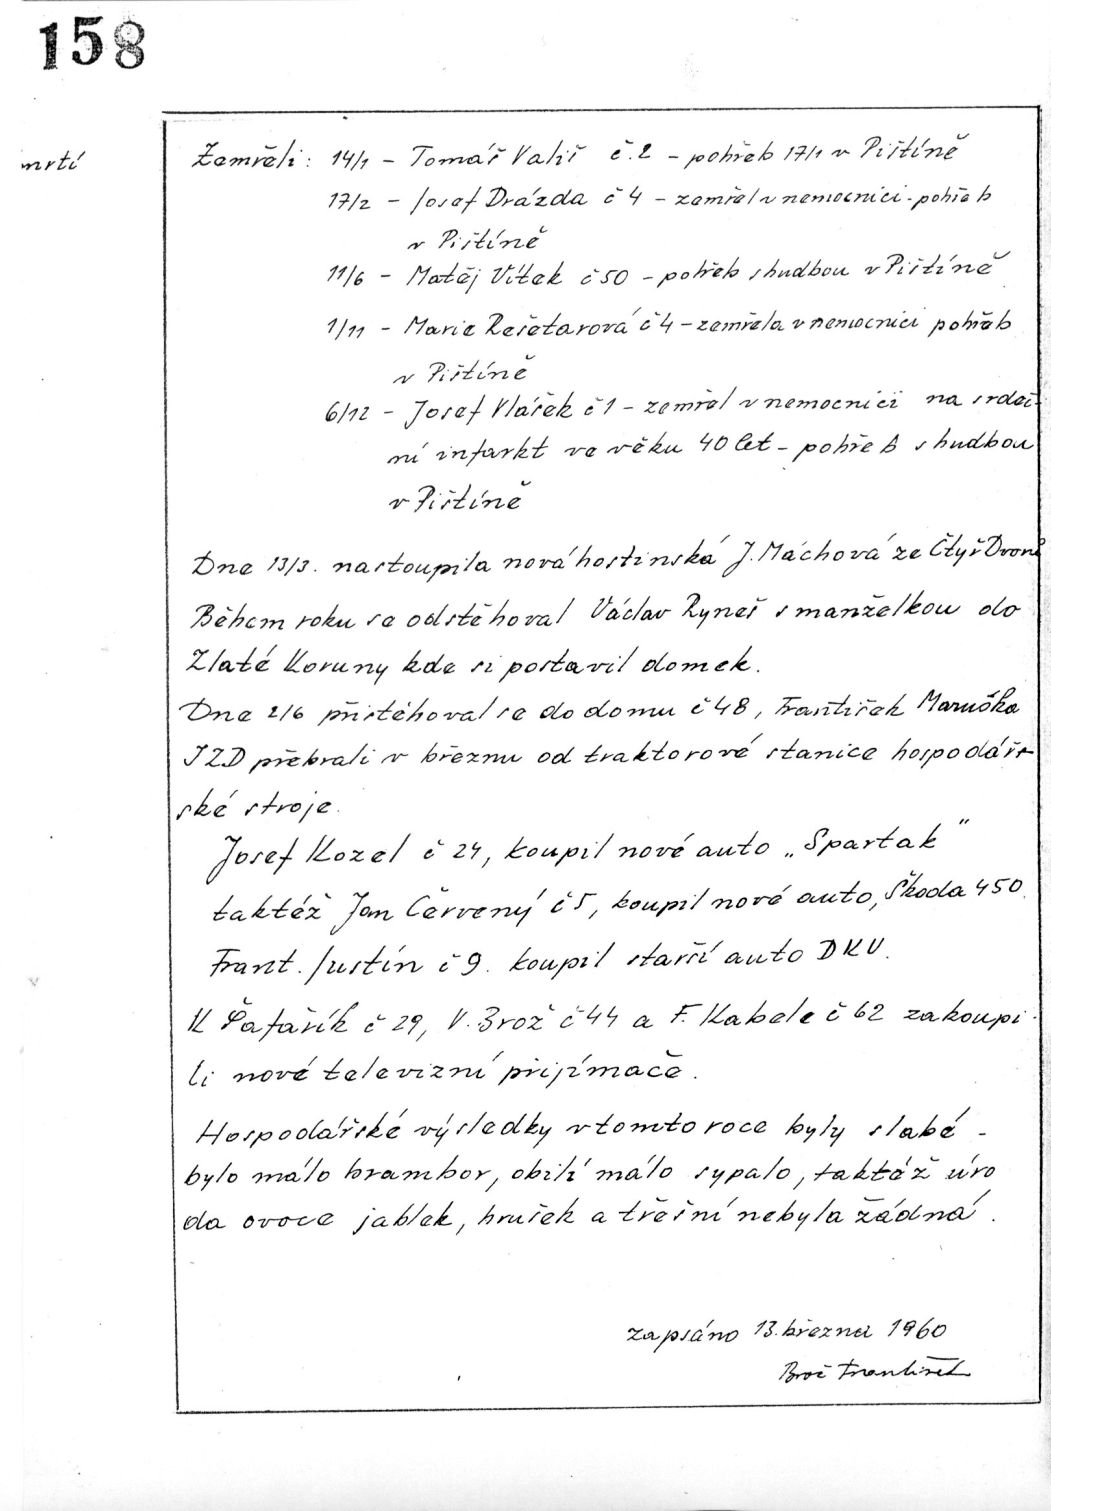 158
mrtí
Zemřeli: 14/1 – Tomáš Vališ č.2 – pohřeb 17/1 v Pištíně
17/2 – Josef Drázda č 4 – zemřel v nemocnici - pohřeb
v Pištíně
11/6 – Matěj Vítek č 50 – pohřeb s hudbou v Pištíně
1/11 – Marie Rešetarová č 4 – zemřela v nemocnici pohřeb
v Pištíně
6/12 – Josef Vlášek č 1 – zemřel v nemocnici na srdeč-
ní infarkt ve věku 40 let – pohřeb s hudbou
v Pištíně
Dne 13/3. nastoupila nová hostinská J. Máchová ze Čtyř Dvorů
Během roku se odstěhoval Václav Ryneš s manželkou do
Zlaté Koruny kde si postavil domek.
Dne 2/6 přistěhoval se do domu č 48, František Maruška
JZD přebrali v březnu od traktorové stanice hospodář-
ské stroje.
Josef Kozel č 24, koupil nové auto „Spartak"
taktéž Jan Červený č 5, koupil nové auto, Škoda 450.
Frant. Justín č 9. koupil starší auto DKV.
K Šafařík č 29, V. Brož č 44 a F. Kabele č 62 zakoupi-
li nové televizní přijímače.
Hospodářské výsledky v tomto roce byly slabé -
bylo málo brambor, obilí málo sypalo, taktéž úro
da ovoce jablek, hrušek a třešní nebyla žádná.
zapsáno 13. března 1960
Brož František